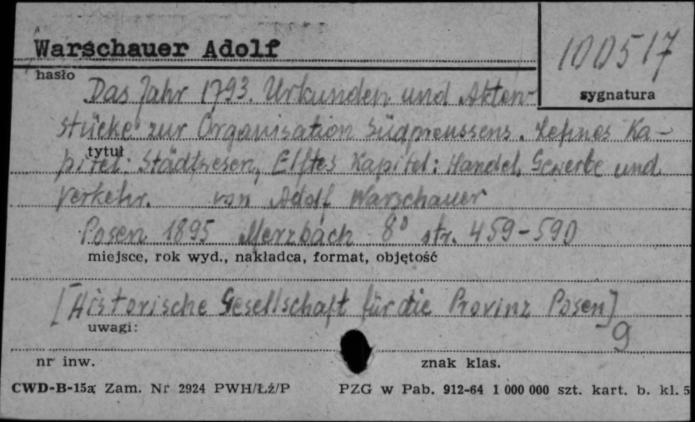 Warschauer Adolf
100517
hasło
sygnatura
Das Jahr 1793. Urkunden und Akten-
stücke zur Organisation Südpreussens. Zehnes Ka-
tytuł
pitel: Städtwesen, Elftes Kapitel: Handel, Gewerbe und
Verkehr. von Adolf Warschauer
Posen 1895 Merzbach 8° str. 459-590
miejsce, rok wyd., nakładca, format, objętość
[Historische Gesellschaft für die Provinz Posen]
uwagi:
9
nr inw.
znak klas.
CWD-B-15a Zam. Nr 2924 PWH/Łż/P PZG w Pab. 912-64 1 000 000 szt. kart. b. kl. 5